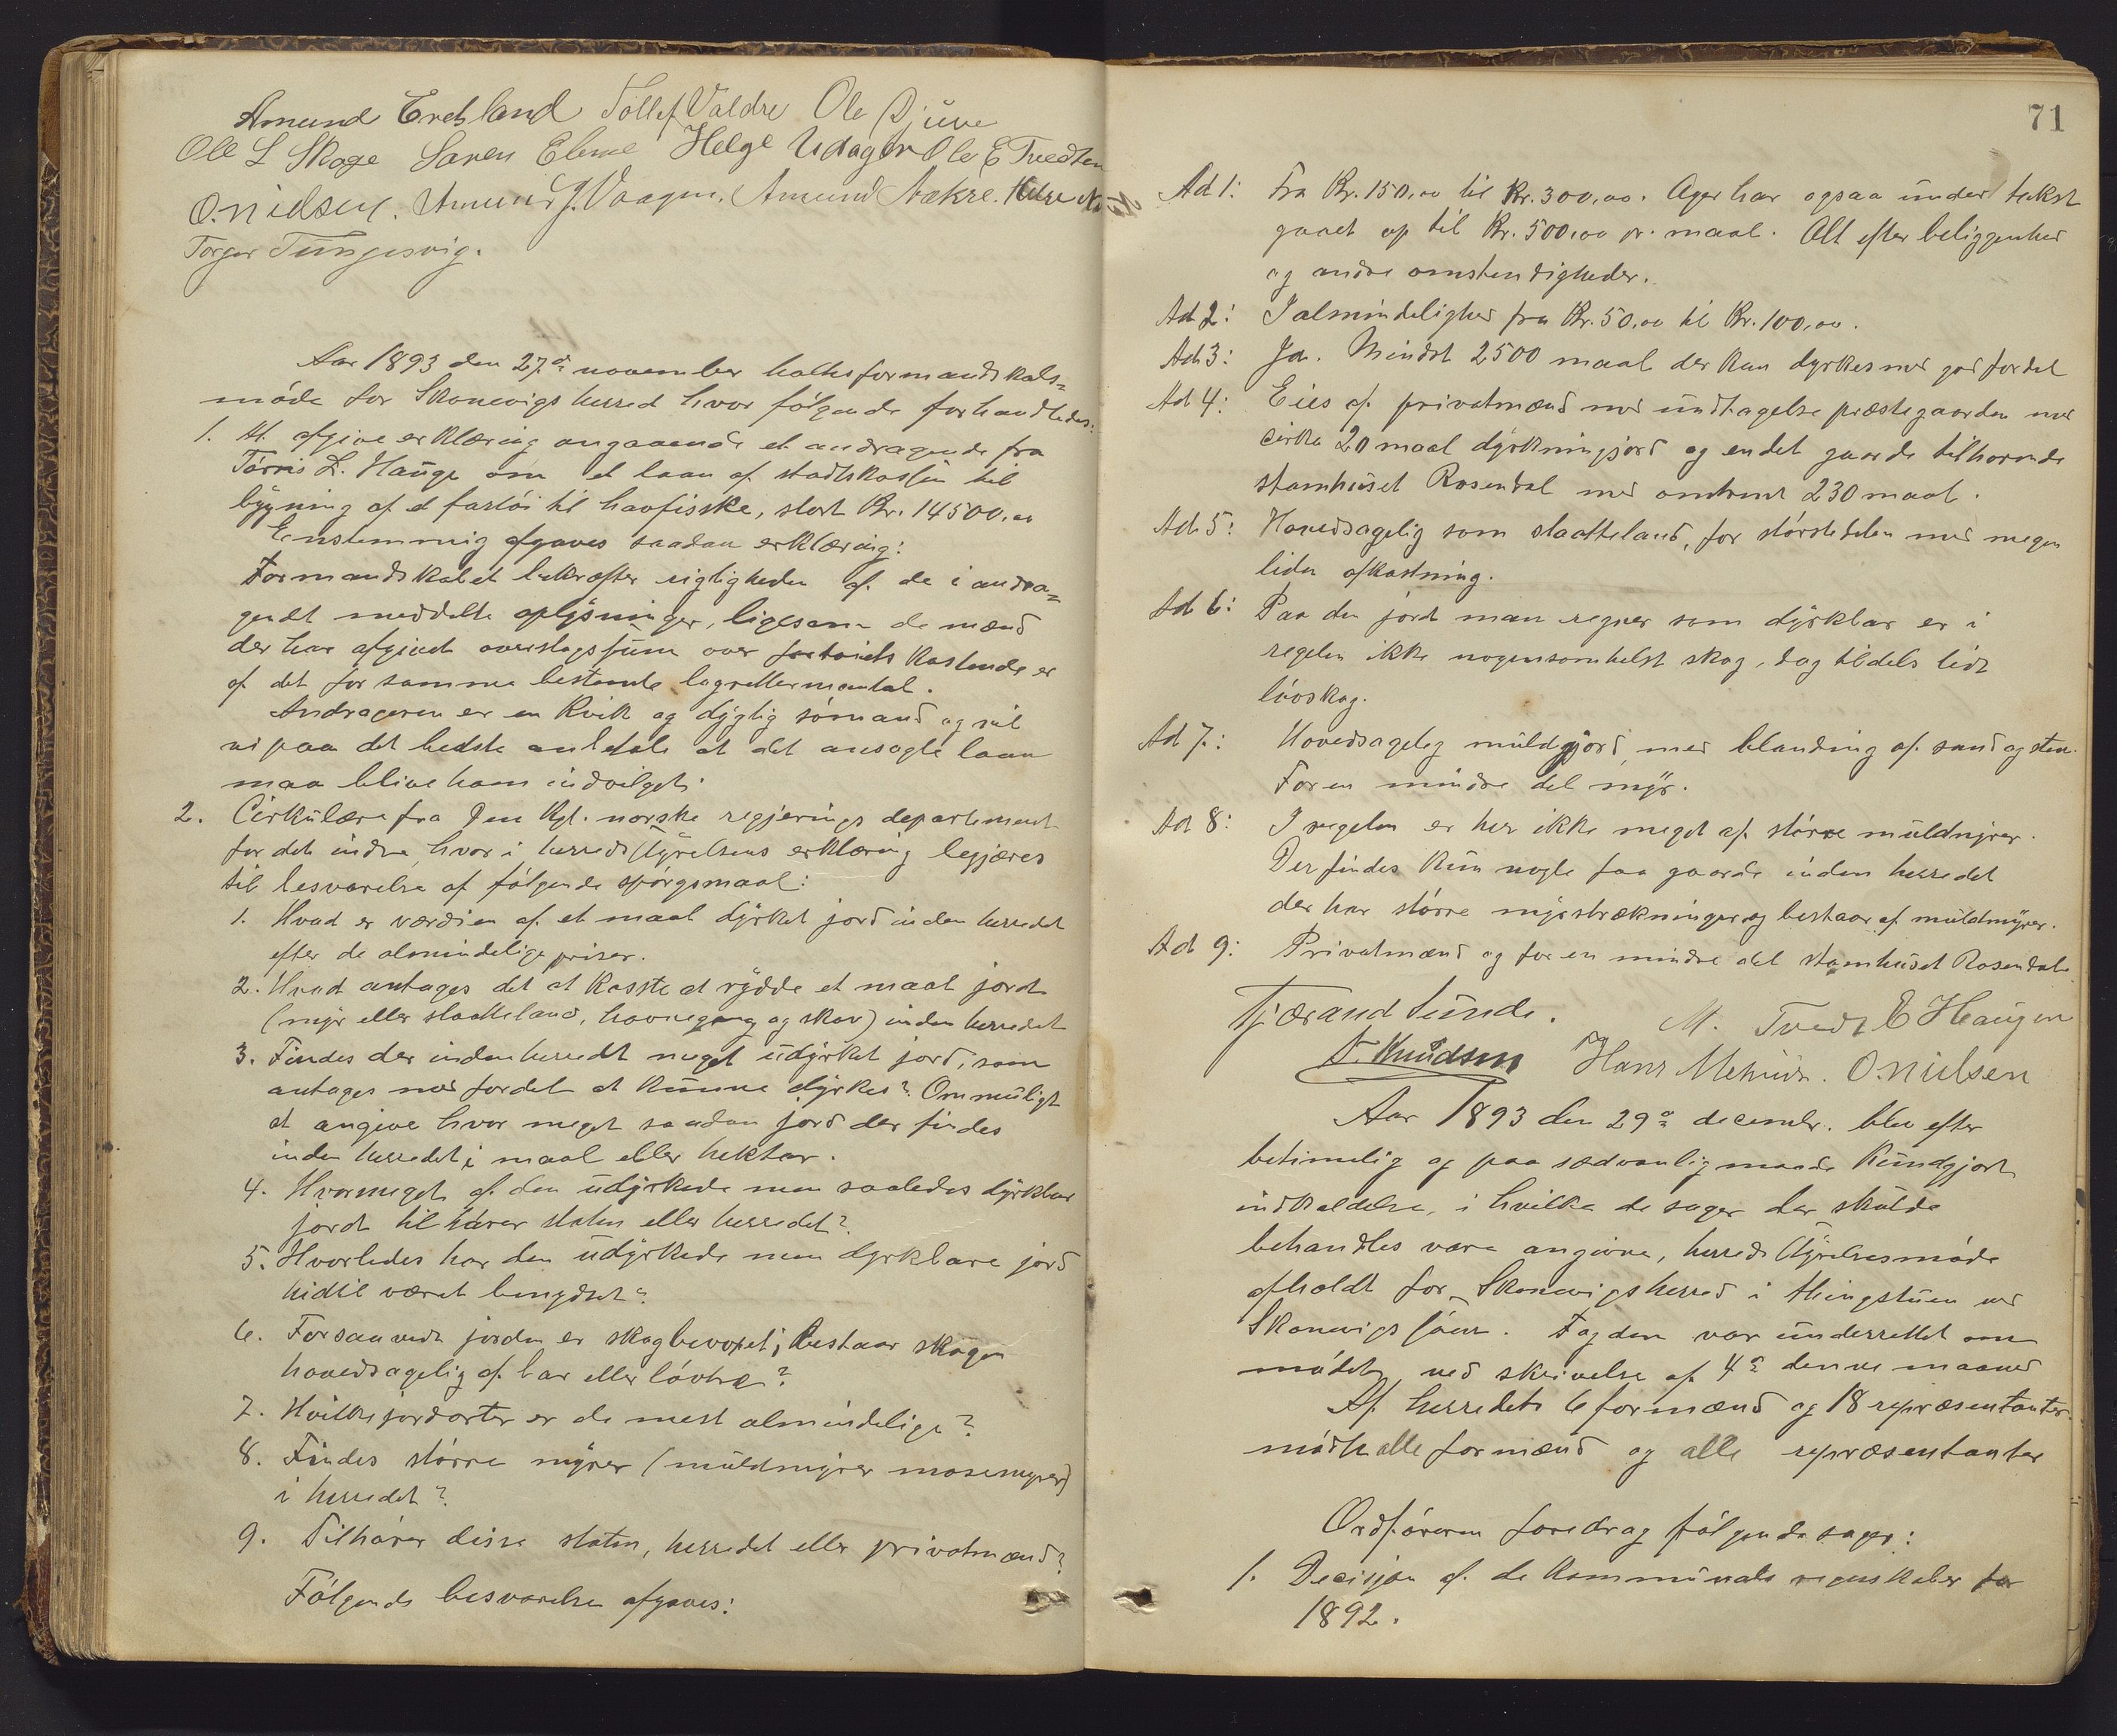 Amund Eretsland Tollef Valdre Ole Djuve
Ole L Skoge Søren Ebne Helge Udager Ole E Tvedten
O. Nielsen. Amund J. Vaagen. Amund Aakre.
Torger Tungesvig.
Aar 1893 den 27de november holdtes formandskabs=
møde for Skonevigs herred hvor følgende forhandledes:
1. At afgive erklæring angaaende et andragende fra
Tørris L. Hauge om et laan af statskassen til
bygning af et fartøi til havfisske, stort Kr. 14500,00
Enstemmig afgaves saadan erklæring:
Formandskabet bekræfter rigtigheden af de i andra=
gendet meddelte oplysninger, ligesom de mænd
der har afgivet overslagssum over fartøiets kostende er
af det for samme bestemte lagrettesmandtal.
Andrageren er en kvik og dygtig sømand og vil
vi paa det bedste anbefale at det ansøgte laan
maa blive ham indvilget.
2. Cirkulære fra Den Kgl. norske regjerings departement
for det indre, hvor i herredsstyrelsens erklæring begjæres
til besvarelse af følgende spørgsmaal:
1. Hvad er værdien af et maal dyrket jord inden herredet
efter de almindelige priser.
2. Hvad antages det at kosste at rydde et maal jord
(myr eller slaatteland, havnegang og skov) inden herredet
3. Findes der inden herredet meget udyrket jord, som
antages med fordel at kunne dyrkes? Om muligt
at angive hvor meget saadan jord der findes
inden herredet i maal eller hektar.
4. Hvormeget af den udyrkede men saaledes dyrkbar
jord tilhører staten eller herredet?
5. Hvorledes har den udyrkede men dyrkbare jord
hidtil været benyttet?
6. Forsaavidt jorden er skogbevoxet; bestaar skogen
hovedsagelig af bar eller løvtræ?
7. Hvilke jordarter er de mest almindelige?
8. Findes større myrer (muldmyrer mosemyrer)
i herredet?
9. Tilhører disse staten, herredet eller privatmænd?
Følgende besvarelse afgaves:
71
Ad 1: Fra Kr. 150,00 til Kr. 300,00. Ager har ogsaa under takst
gaaet op til Kr. 500,00 pr. maal. Alt efter beliggenhed
og andre omstendigheder.
Ad 2: I almindelighed fra Kr. 50,00 til Kr. 100,00.
Ad 3: Ja. Mindst 2500 maal der kan dyrkes med god fordel
Ad 4: Eies af privatmænd med undtagelse præstegaarden med
cirka 20 maal dyrkningsjord og endel gaarde tilhørende
stamhuset Rosendal med omtrent 230 maal.
Ad 5: Hovedsagelig som slaatteland, for størstedelen med megen
liden afkastning.
Ad 6: Paa den jord man regner som dyrkbar er i
regelen ikke nogensomhelst skog, dog tildels lidt
løvskog.
Ad 7: Hovedsagelig muldjord med blanding af sand og sten.
For en mindre del myr.
Ad 8: I regelen er her ikke meget af større muldmyrer.
Der findes kun nogle faa gaarde inden herredet
der har større myrstrækninger og bestaar af muldmyrer.
Ad 9: Privatmænd og for en mindre del stamhuset Rosendal.
Tjærand Sunde. M. Tvedt E Haugen
T. Knudsen Hans Mehus. O. Nielsen
Aar 1893 den 29de decembr. blev efter
betimelig og paa sædvanlig maade kundgjort
indkaldelse, i hvilke de sager der skulde
behandles vare angivne, herredsstyrelsesmøde
afholdt for Skonevigs herred i thingstuen ved
Skonevigssøen. Fogden var underrettet om
mødet ved skrivelse af 4de denne maaned
Af herredets 6 formænd og 18 repræsentanter
mødte alle formænd og alle repræsentanter
Ordføreren foredrag følgende sager:
1. Decisjon af de kommunale regnskaber for
1892.